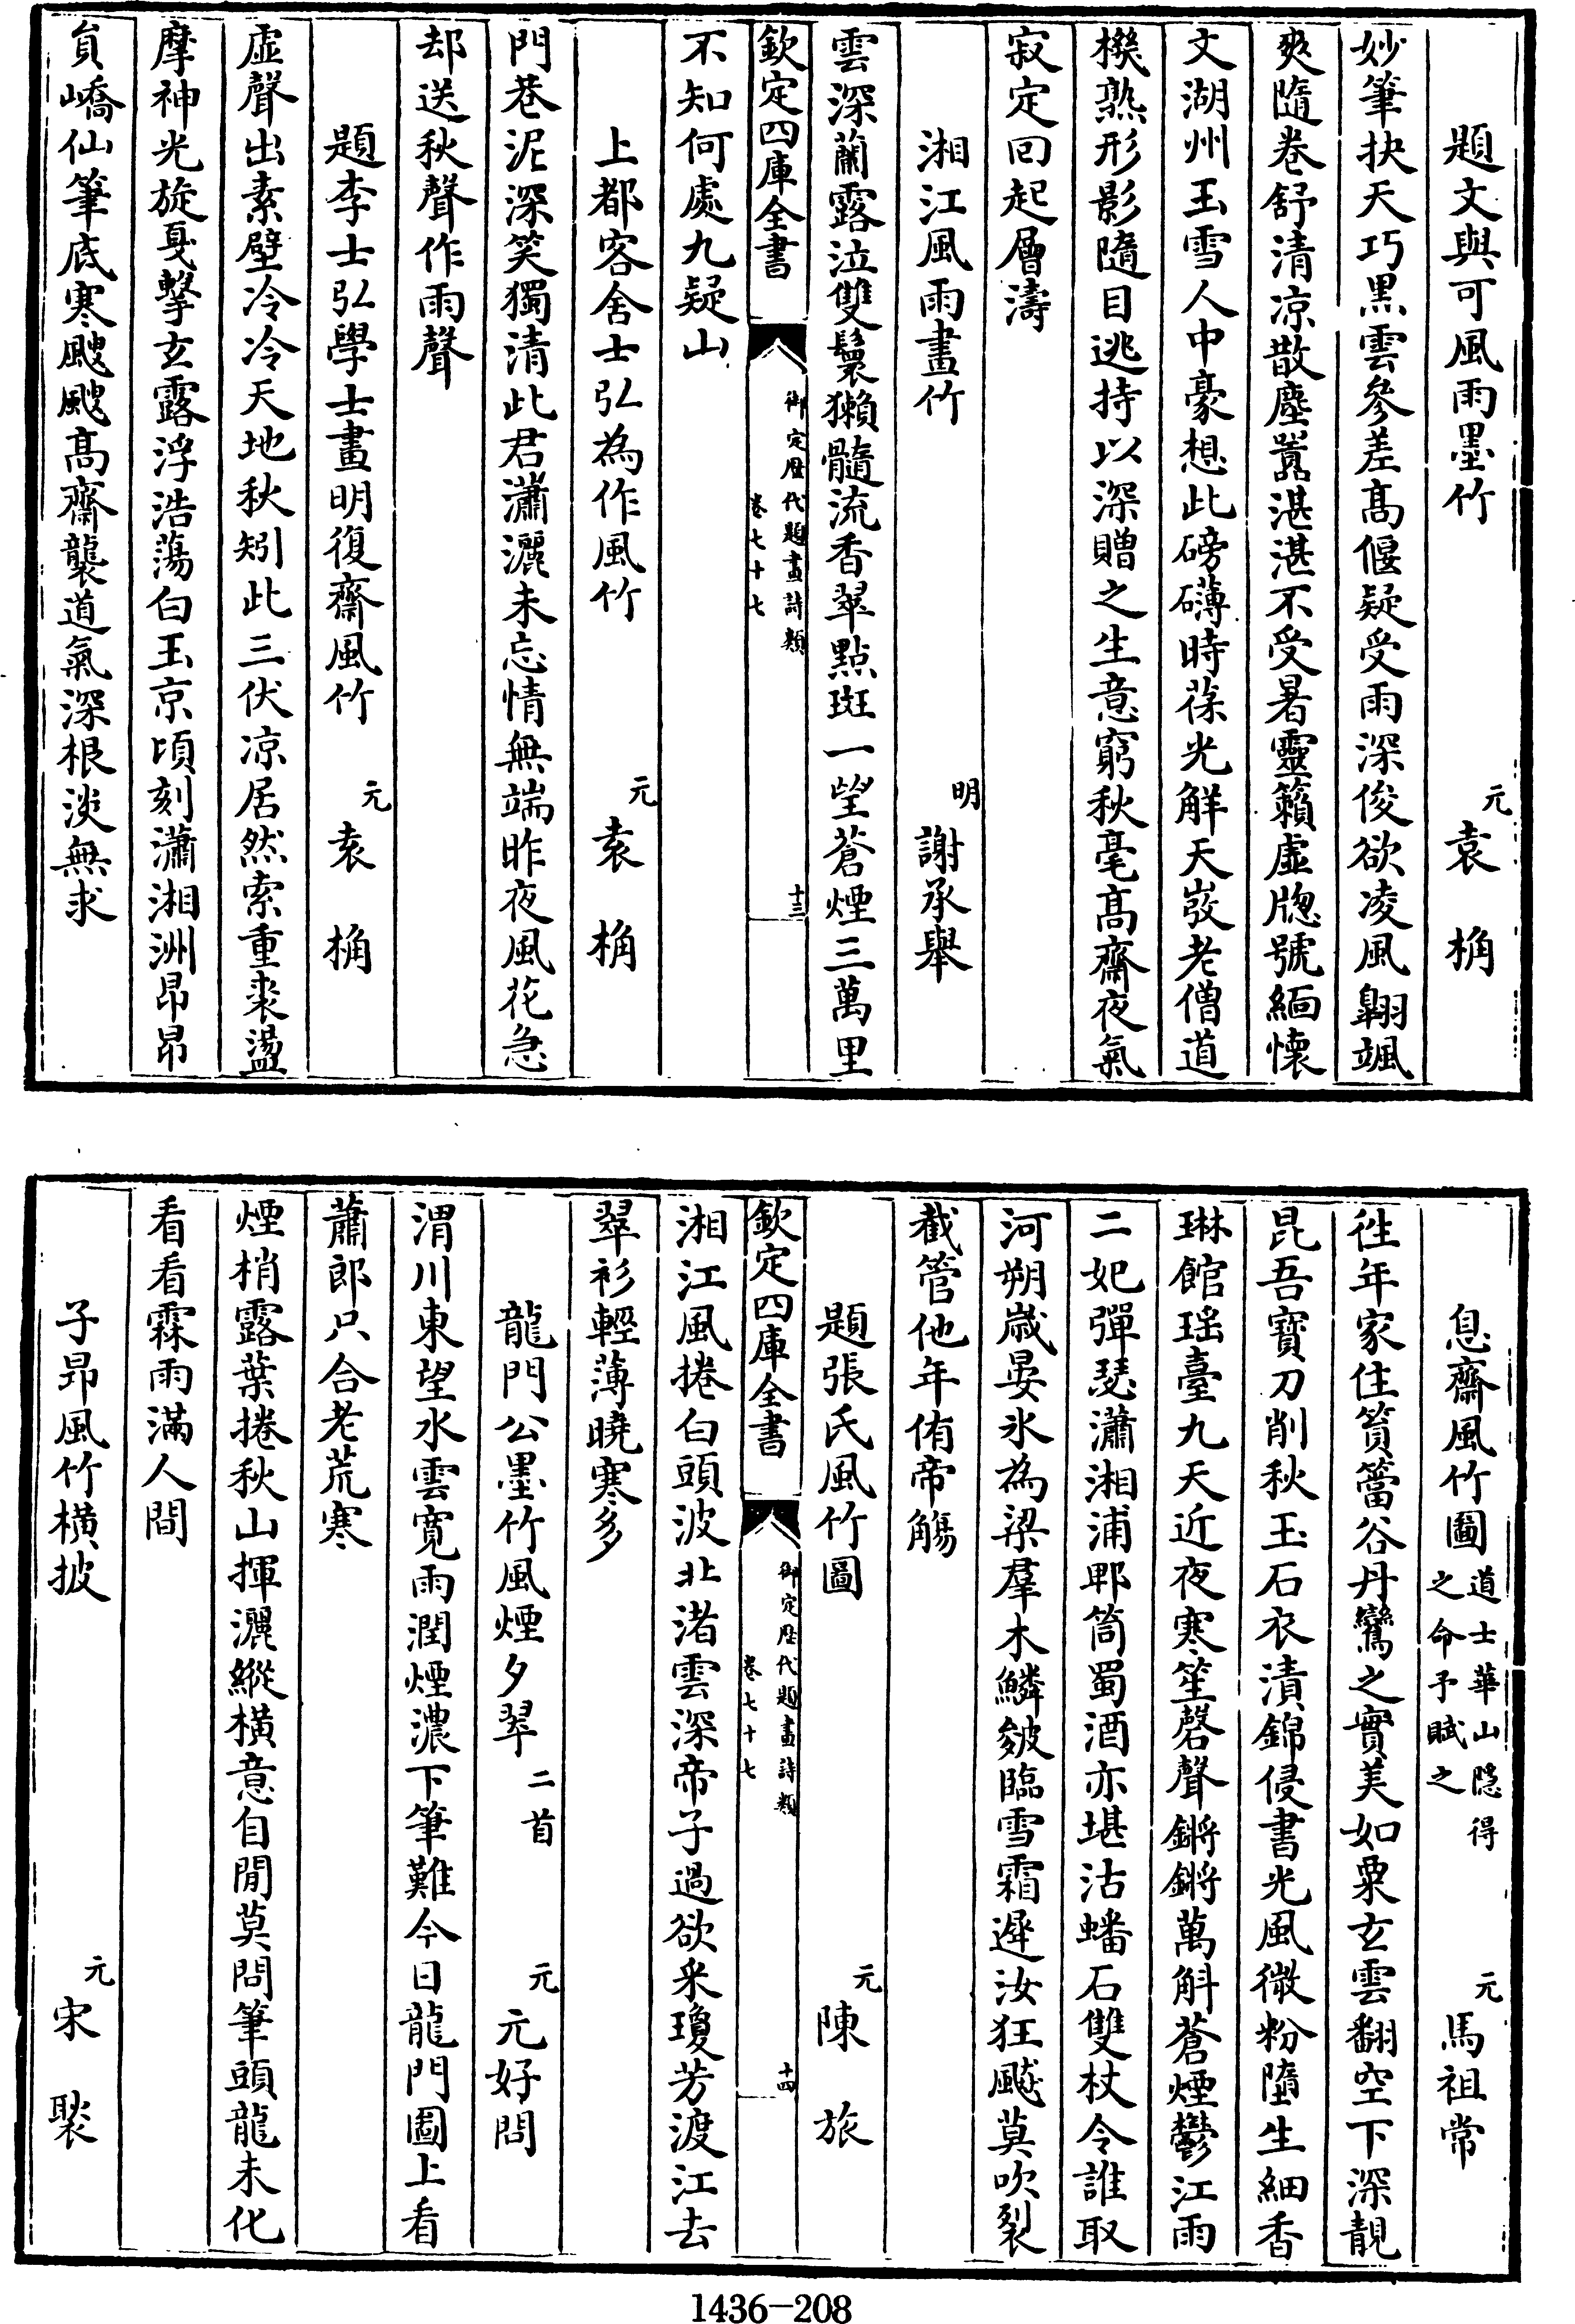 題文與可風雨墨竹　元　袁　桷
妙筆抉天巧黒雲參差髙偃疑受雨深俊欲凌風翺颯
爽隨巻舒清凉散塵囂湛湛不受暑靈籟虚牕號緬懐
文湖州玉雪人中豪想此磅礴時葆光解天弢老僧道
機熟形影隨目逃持以深贈之生意窮秋毫髙齋夜氣
寂定回起層濤
湘江風雨畫竹　明　謝承舉
雲深蘭露泣雙鬟獺髓流香翠點斑一望蒼煙三萬里
欽定四庫全書　御定歴代題畫詩類　卷七十七　十三
不知何處九疑山
上都客舍士弘為作風竹　元　袁　桷
門巷泥深笑獨清此君瀟灑未忘情無端昨夜風花急
却送秋聲作雨聲
題李士弘學士畫明復齋風竹　元　袁　桷
虚聲出素壁冷冷天地秋矧此三伏凉居然索重裘盪
摩神光旋戛擊玄露浮浩蕩白玉京頃刻瀟湘洲昂昂
負嶠仙筆底寒颼颼髙齋襲道氣深根淡無求
息齋風竹圖　道士華山隠得之命予賦之　元　馬祖常
徃年家住篔簹谷丹鸞之實美如粟玄雲翻空下深靚
昆吾寳刀削秋玉石衣漬錦侵書光風微粉墮生細香
琳館瑶臺九天近夜寒笙磬聲鏘鏘萬斛蒼煙鬱江雨
二妃彈瑟瀟湘浦郫筒蜀酒亦堪沽蟠石雙杖令誰取
河朔嵗晏氷為梁羣木鱗皴臨雪霜遲汝狂飇莫吹裂
截管他年侑帝觴
題張氏風竹圖　元　陳　旅
欽定四庫全書　御定歴代題畫詩類　卷七十七　十四
湘江風捲白頭波北渚雲深帝子過欲采瓊芳渡江去
翠衫輕薄曉寒多
龍門公墨竹風煙夕翠　二首　元　元好問
渭川東望水雲寛雨潤煙濃下筆難今日龍門圖上看
蕭郎只合老荒寒
煙梢露葉捲秋山揮灑縱橫意自閒莫問筆頭龍未化
看看霖雨滿人間
子昂風竹橫披　元　宋　褧
1436－208